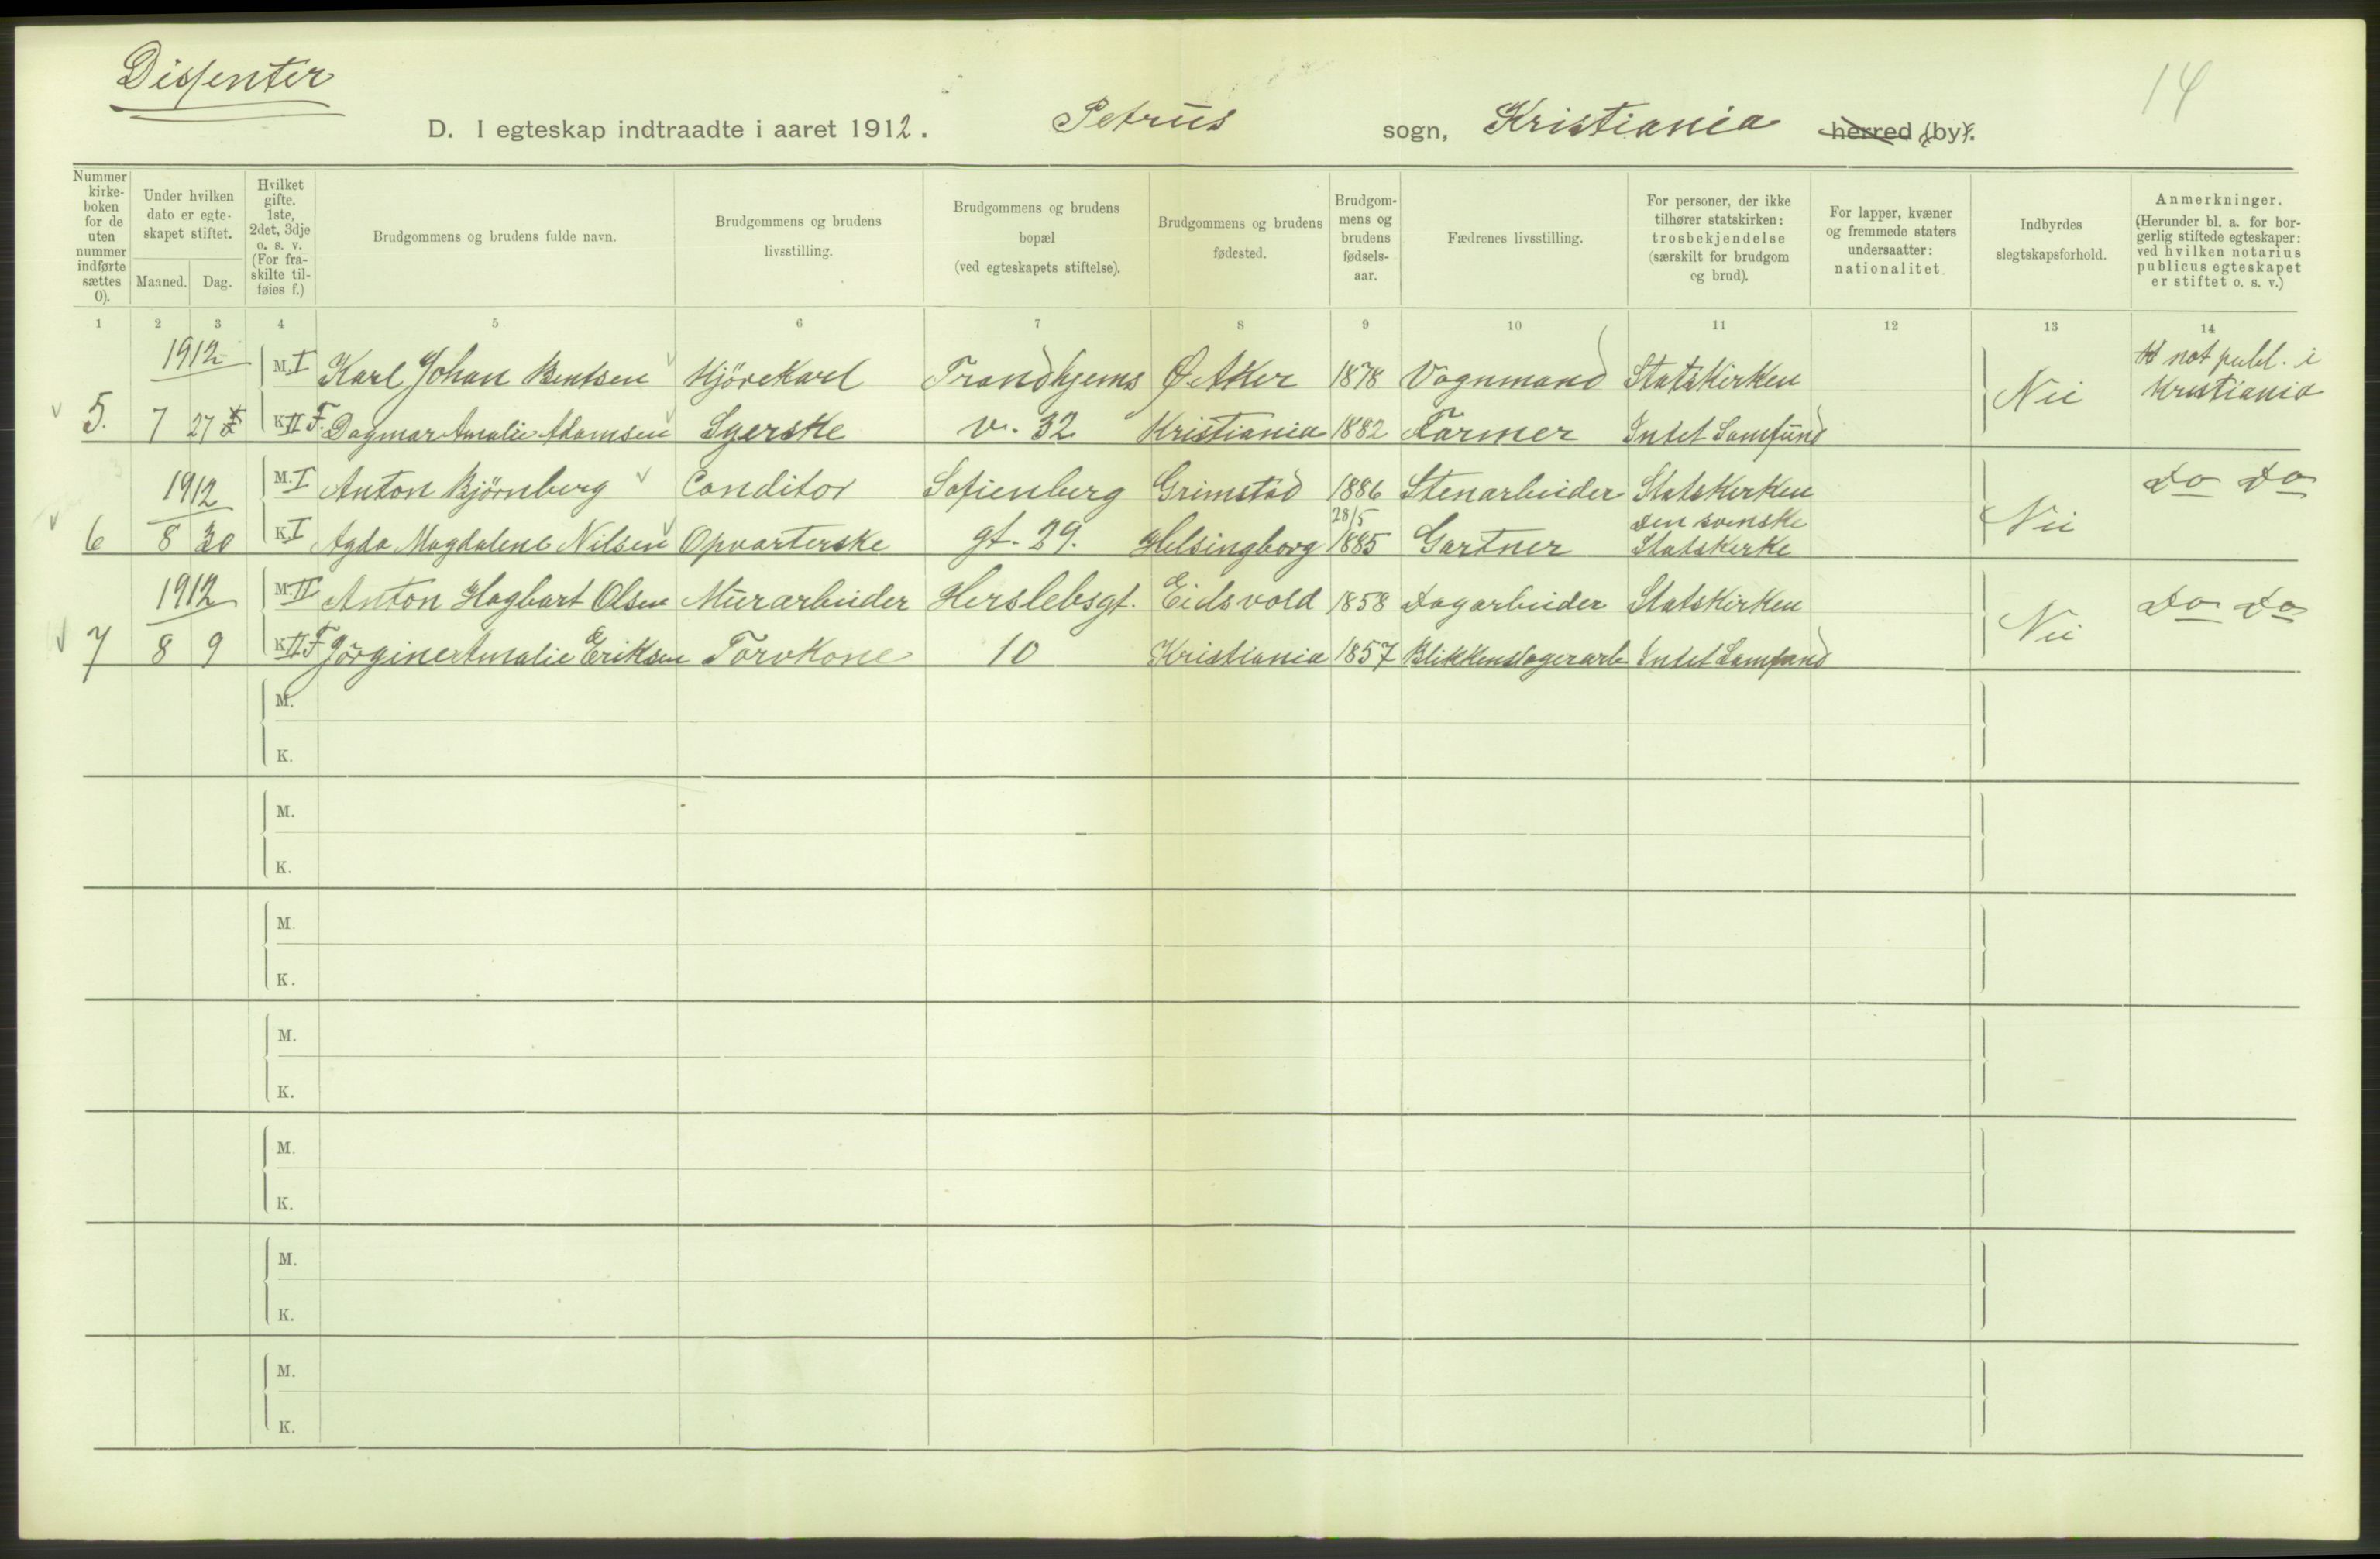 Dissenter
14
D. I egteskap indtraadte i aaret 1912. Petrus sogn, Kristiania herred (by).
Nummer kirke-boken for de uten nummer indførte sættes 0).
Under hvilken dato er egte-skapet stiftet.
Maaned. Dag.
Hvilket gifte. 1ste, 2det, 3dje o. s. v. (For fra-skilte til-føies f.)
Brudgommens og brudens fulde navn.
Brudgommens og brudens livsstilling.
Brudgommens og brudens bopæl (ved egteskapets stiftelse).
Brudgommens og brudens fødested.
Brudgom-mens og brudens fødsels-aar.
Fædrenes livsstilling.
For personer, der ikke tilhører statskirken: trosbekjendelse (særskilt for brudgom og brud).
For lapper, kvæner og fremmede staters undersaatter: nationalitet.
Indbyrdes slegtskapsforhold.
Anmerkninger. (Herunder bl. a. for bor-gerlig stiftede egteskaper: ved hvilken notarius publicus egteskapet er stiftet o. s. v.)
1 2 3 4 5 6 7 8 9 10 11 12 13 14
1912 M. I Karl Johan Bentsen Kjörekarl Trondhjems Ø. Aker 1878 Vognmand Statskirken not publ. i
5. 7 27 K. II F. Dagmar Amalie Adamsen Syerske v. 32 Kristiania 1882 Farmer Intet Samfund Nei Kristiania
1912 M. I Anton Björnberg Conditor Sofienberg Grimstad 1886 Stenarbeider Statskirken Do Do
6 8 30 K. I Agda Magdalene Nilsen Opvarterske gt. 29. Helsingborg 28/5 1885 Gartner Den svenske Statskirke Nei
1912 M. II Anton Hagbart Olsen Murarbeider Herslebsgt. Eidsvold 1858 Dagarbeider Statskirken Do Do
7 8 9 K. II F Jörgine Amalie Eriksen Torvkone 10 Kristiania 1857 Blikkenslagerarb Intet Samfund Nei
M.
K.
M.
K.
M.
K.
M.
K.
M.
K.
M.
K.
M.
K.